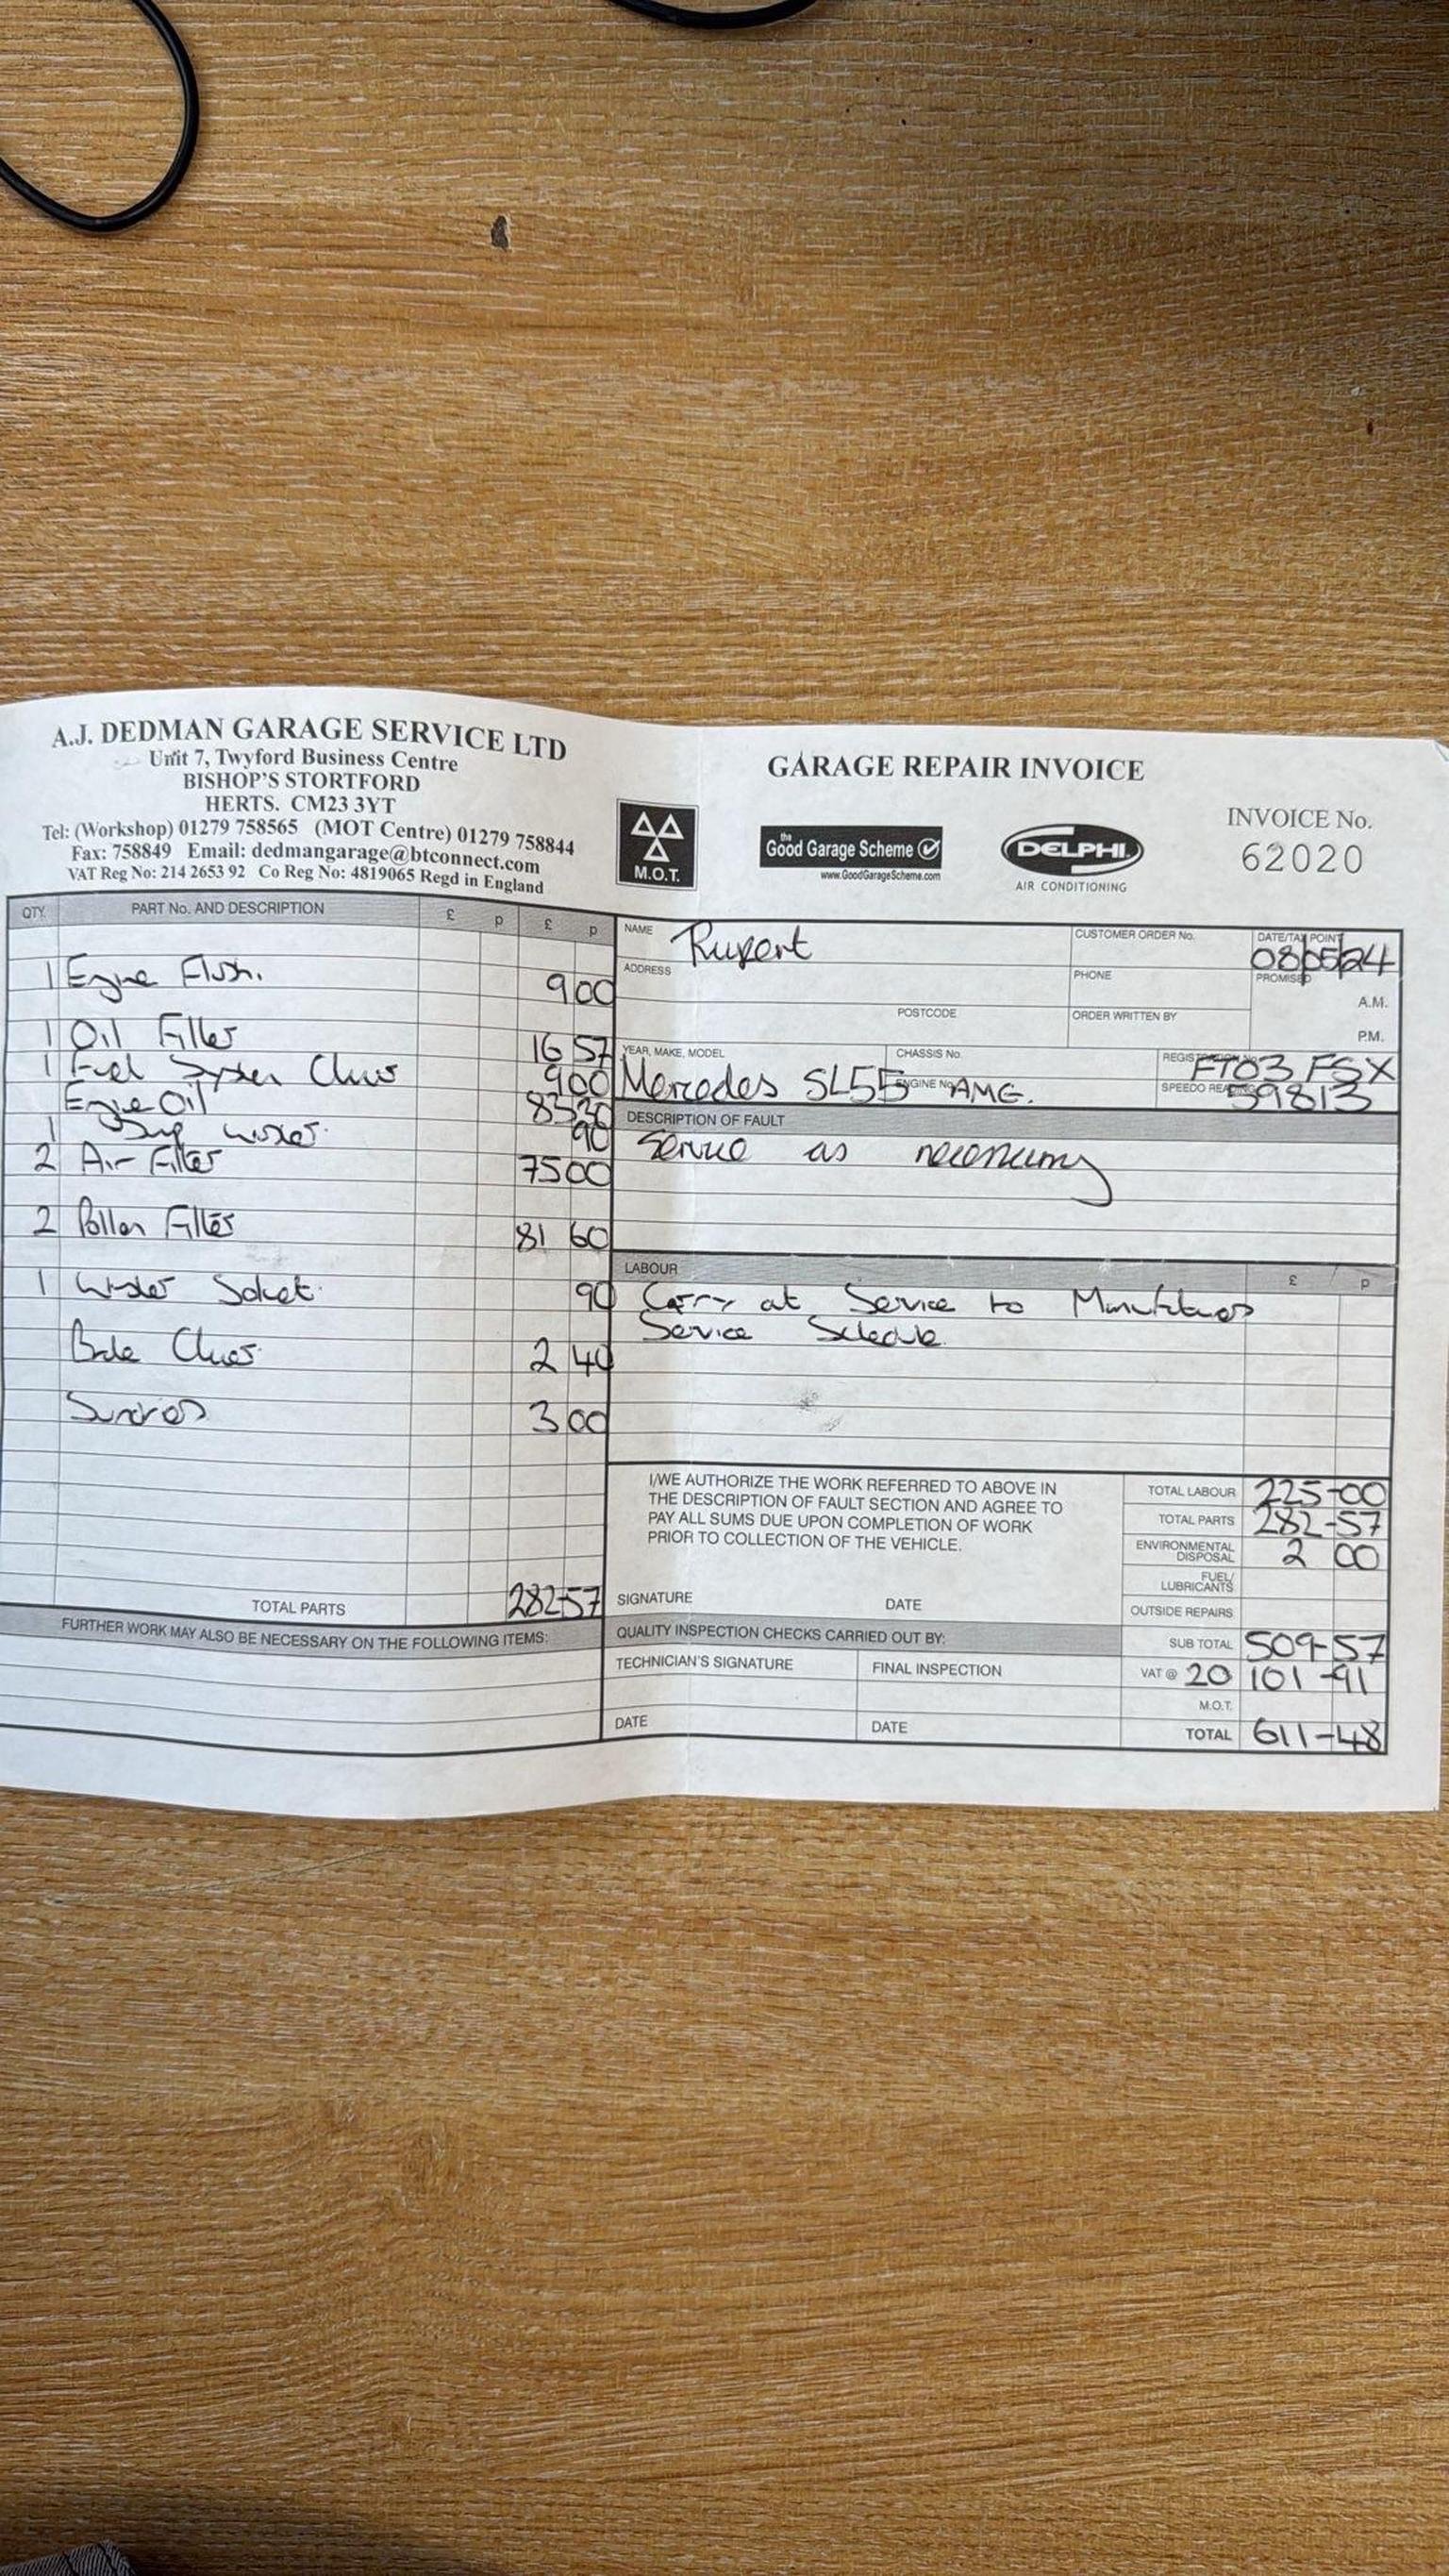 A.J. DEDMAN GARAGE SERVICE LTD
Unit 7, Twyford Business Centre
BISHOP'S STORTFORD
HERTS. CM23 3YT
Tel: (Workshop) 01279 758565 (MOT Centre) 01279 758844
Fax: 758849 Email: dedmangarage@btconnect.com
VAT Reg No: 214 2653 92 Co Reg No: 4819065 Regd in England
M.O.T.
GARAGE REPAIR INVOICE
the Good Garage Scheme
www.GoodGarageScheme.com
DELPHI
AIR CONDITIONING
INVOICE No.
62020
QTY. PART No. AND DESCRIPTION £ p £ p
1 Engine Flush. 9 00
1 Oil Filter 16 57
1 Fuel System 9 00
Engine Oil 83 20
1 Sump washer. 90
2 Air Filter 75 00
2 Pollen Filter 81 60
1 Washer 90
2 40
Sundries 3 00
TOTAL PARTS 282-57
FURTHER WORK MAY ALSO BE NECESSARY ON THE FOLLOWING ITEMS:
NAME Rupert
CUSTOMER ORDER No.
DATE/TAX POINT 08/05/24
ADDRESS
PHONE
PROMISED
A.M.
POSTCODE
ORDER WRITTEN BY
P.M.
YEAR, MAKE, MODEL
CHASSIS No.
REGISTRATION No. FT03 FSX
Mercedes SL55 AMG.
ENGINE No.
SPEEDO READING 59813
DESCRIPTION OF FAULT
Service as necessary
LABOUR £ p
Carry out Service to Manufacturers
Service Schedule.
I/WE AUTHORIZE THE WORK REFERRED TO ABOVE IN
THE DESCRIPTION OF FAULT SECTION AND AGREE TO
PAY ALL SUMS DUE UPON COMPLETION OF WORK
PRIOR TO COLLECTION OF THE VEHICLE.
SIGNATURE DATE
TOTAL LABOUR 225-00
TOTAL PARTS 282-57
ENVIRONMENTAL DISPOSAL 2 00
FUEL/ LUBRICANTS
OUTSIDE REPAIRS
SUB TOTAL 509-57
VAT @ 20 101-91
M.O.T.
TOTAL 611-48
QUALITY INSPECTION CHECKS CARRIED OUT BY:
TECHNICIAN'S SIGNATURE FINAL INSPECTION
DATE DATE